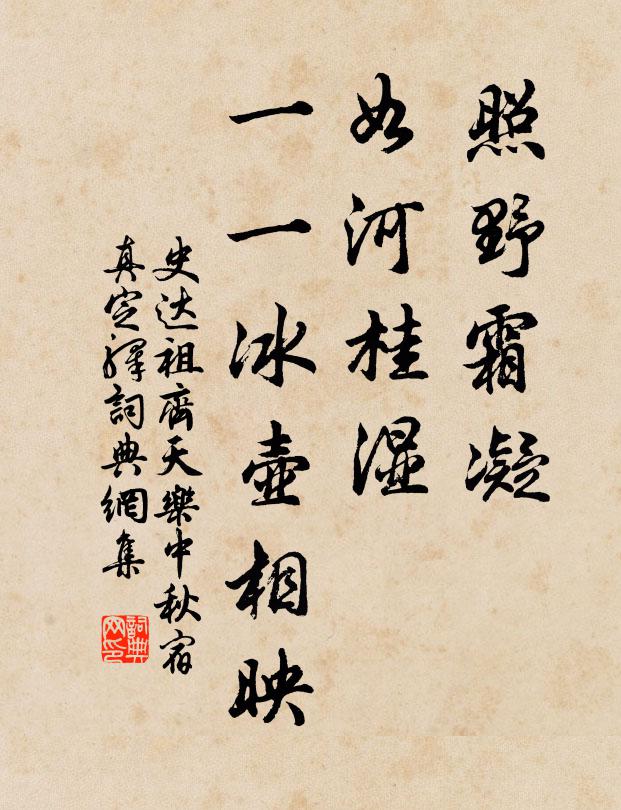 照野霜凝
如河桂湿
一一冰壺相映
史达祖齊天樂中秋宿
真定驛詞典網集
詞典
网印